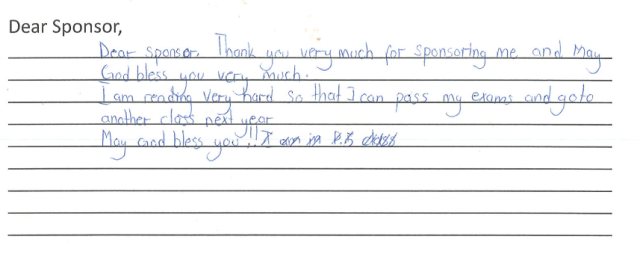 Dear Sponsor,
Dear Sponsor. Thank you very much for sponsoring me and May
God bless you very much.
I am reading very hard so that I can pass my exams and goto
another class next year
May God bless you!! I am in P.5 class